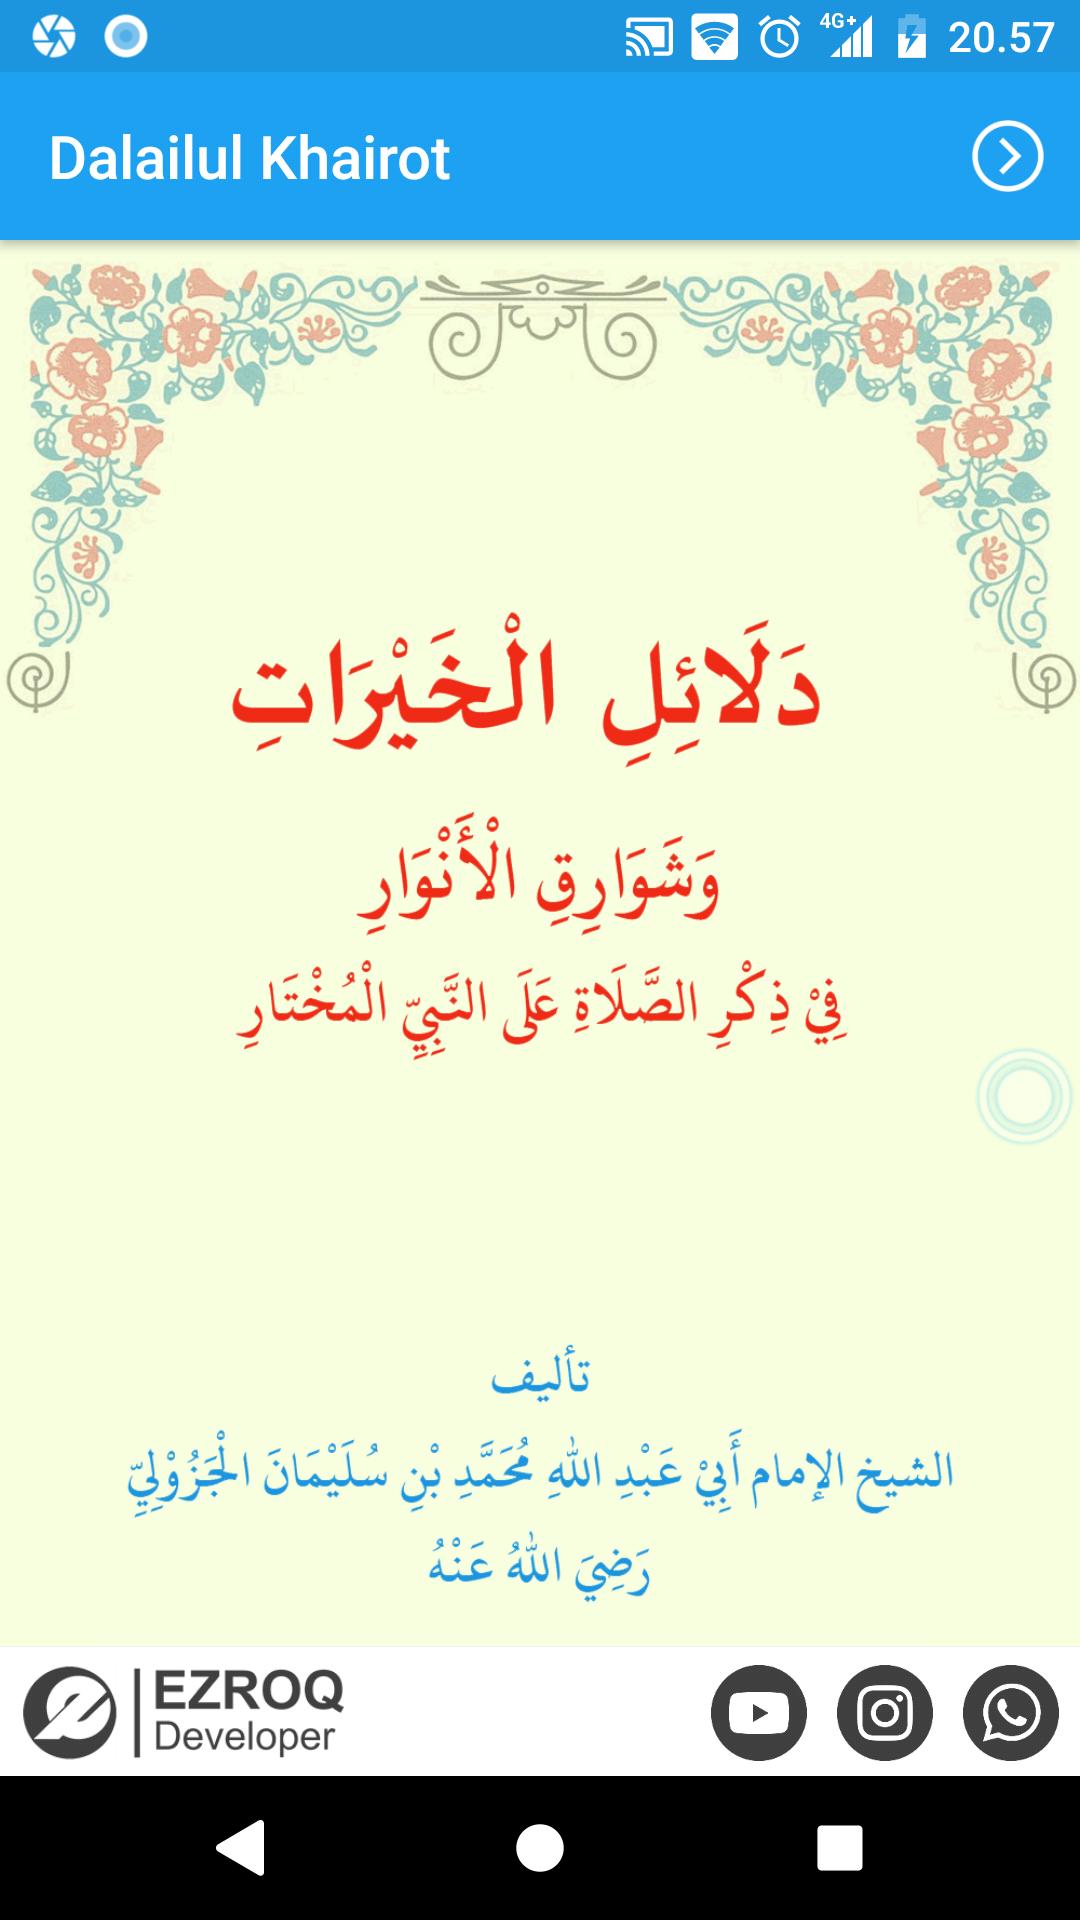 4G+ 20.57
Dalailul Khairot
دَلَائِلِ الْخَيْرَاتِ
وَشَوَارِقِ الْأَنْوَارِ
فِيْ ذِكْرِ الصَّلَاةِ عَلَى النَّبِيِّ الْمُخْتَارِ
تأليف
الشيخ الإمام أَبِيْ عَبْدِ اللهِ مُحَمَّدِ بْنِ سُلَيْمَانَ الْجَزُوْلِيِّ
رَضِيَ اللهُ عَنْهُ
EZROQ
Developer